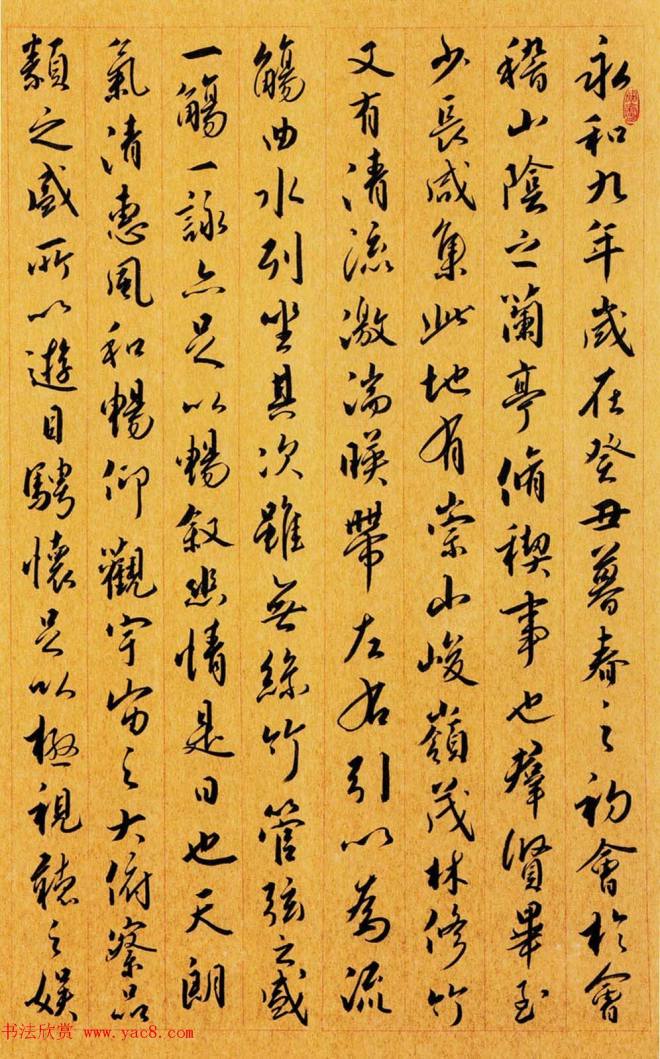 永和九年歲在癸丑暮春之初會於會
稽山陰之蘭亭脩稧事也群賢畢至
少長咸集此地有崇山峻嶺茂林修竹
又有清流激湍暎帶左右引以為流
觴曲水列坐其次雖無絲竹管弦之盛
一觴一詠亦足以暢敘幽情是日也天朗
氣清惠風和暢仰觀宇宙之大俯察品
類之盛所以遊目騁懷足以極視聽之娛
书法欣赏 www.yac8.com